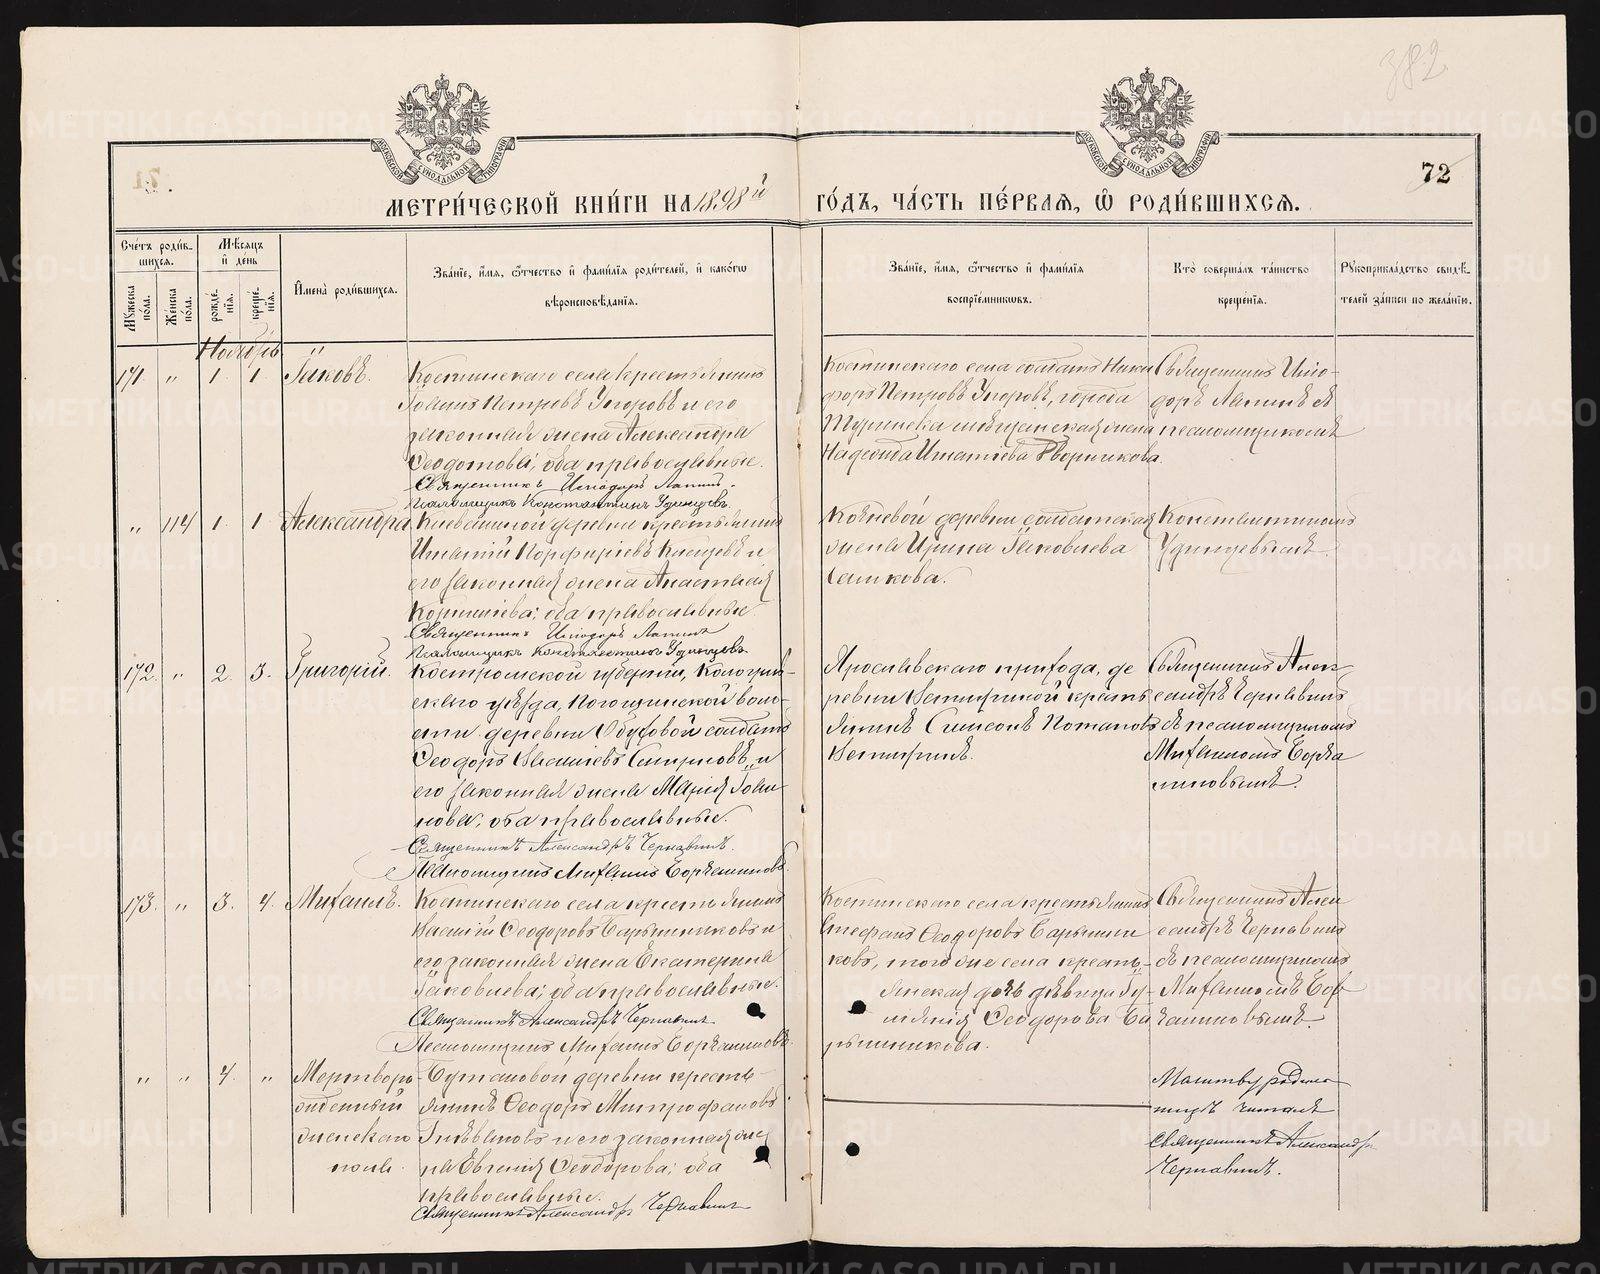 382
72
МЕТРИ́ЧЕСКОЙ КНИ́ГИ НА 1898й ГО́ДЪ, ЧА́СТЬ ПЕ́РВАѦ, Ѿ РОДИ́ВШИХСѦ.
Сче́тъ роди́в-
шихсѧ.
Мꙋжеска по́ла.
Же́нска по́ла.
Мѣ́сѧцъ и҆ де́нь
рожде́-нїѧ.
креще́-нїѧ.
И҆мена̀ роди́вшихсѧ.
Зва́нїе, и҆́мѧ, ѻ҆́тчество и҆ фами́лїѧ роди́телей, и҆ како́гѡ
вѣроисповѣ́данїѧ.
Зва́нїе, и҆́мѧ, ѻ҆́тчество и҆ фами́лїѧ
воспрїе́мниковъ.
Кто̀ соверша́лъ та́инство
креще́нїѧ.
Рꙋкоприкла́дство свидѣ́-
телей за́писи по жела́нїю.
Ноябрь
171. " 1. 1. Іаковъ.
Костинскаго села крестьянинъ
Іоаннъ Петровъ Упоровъ и его
законная жена Александра
Ѳеодотова; оба православные.
Священникъ Исидоръ Лапинъ.
Псаломщикъ Константинъ Удинцевъ.
Костинскаго села солдатъ Ники-
форъ Петровъ Упоровъ, города
Туринска мѣщанская жена
Надежда Игнатіева Дворникова.
Священникъ Иси-
доръ Лапинъ съ
псаломщикомъ
" 114 1. 1. Александра
деревни крестьянинъ
Игнатій Порфиріевъ и
его законная жена Анастасія
Корниліева; оба православные.
Священникъ Исидоръ Лапинъ
Псаломщикъ Константинъ Удинцевъ.
деревни солдатская
жена Ирина Іаковлева
Константиномъ
Удинцевымъ.
172. " 2. 3. Григорій.
Костромской губерніи, Кологрив-
скаго уѣзда, воло-
сти деревни солдатъ
Ѳеодоръ Василіевъ Смирновъ и
его законная жена Марія Іоан-
нова; оба православные.
Священникъ Александръ Чернавинъ.
Псаломщикъ Михаилъ
Ярославскаго прихода, де-
ревни кресть-
янинъ Симеонъ Потаповъ
Священникъ Алек-
сандръ Чернавинъ
съ псаломщикомъ
Михаиломъ
173. " 3. 4. Михаилъ.
Костинскаго села крестьянинъ
Василій Ѳеодоровъ Барышниковъ и
его законная жена Екатерина
Іаковлева; оба православные.
Священникъ Александръ Чернавинъ
Псаломщикъ Михаилъ
Костинскаго села крестьянинъ
Стефанъ Ѳеодоровъ Барышни-
ковъ, того же села кресть-
янская дочь дѣвица Іу-
ліанія Ѳеодорова Ба-
рышникова.
Священникъ Алек-
сандръ Чернавинъ
съ псаломщикомъ
Михаиломъ
" " 4. " Мертворо-
жденный
женскаго
пола.
деревни кресть-
янинъ Ѳеодоръ Митрофановъ
и его законная же-
на Евгенія Ѳеодорова; оба
православные.
Священникъ Александръ Чернавинъ
Молитву родиль-
ницѣ читалъ
Священникъ Александръ
Чернавинъ.
METRIKI.GASO-URAL.RU